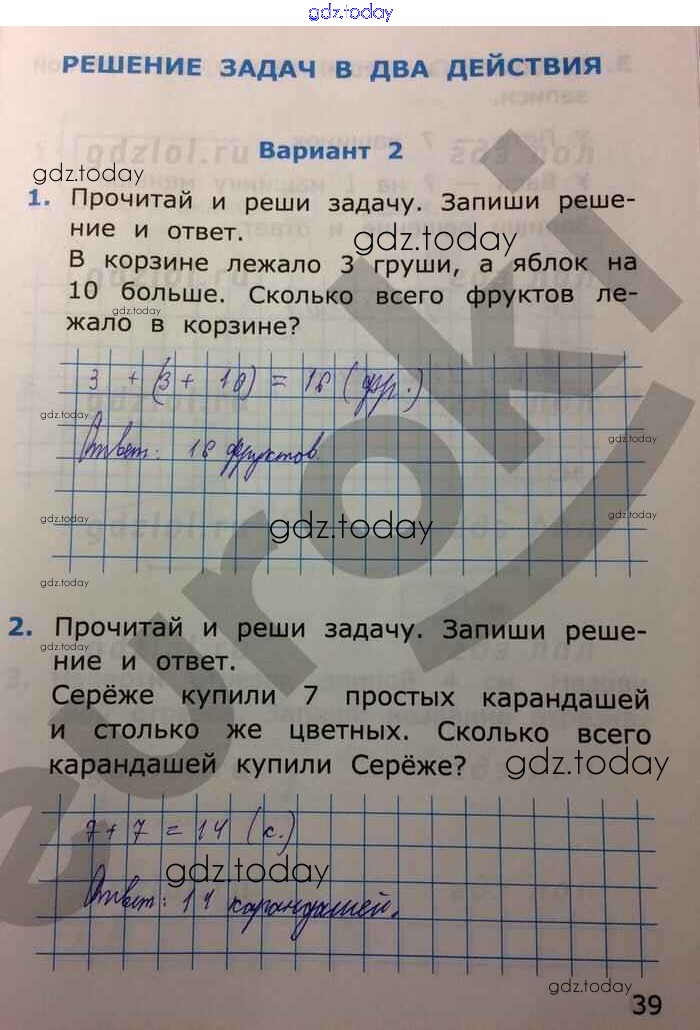 gdz.today
РЕШЕНИЕ ЗАДАЧ В ДВА ДЕЙСТВИЯ
gdzlol.ru
Вариант 2
gdz.today
1. Прочитай и реши задачу. Запиши реше-
ние и ответ.
gdz.today
В корзине лежало 3 груши, а яблок на
10 больше. Сколько всего фруктов ле-
gdz.today
жало в корзине?
3 + (3 + 10) = 16 (фр.)
gdz.today
Ответ: 16 фруктов.
gdz.today
gdz.today
gdz.today
gdz.today
gdz.today
gdz.today
2. Прочитай и реши задачу. Запиши реше-
ние и ответ.
Серёже купили 7 простых карандашей
и столько же цветных. Сколько всего
карандашей купили Серёже?
gdz.today
7 + 7 = 14 (к.)
gdz.today
Ответ: 14 карандашей.
gdz.today
39
euroki